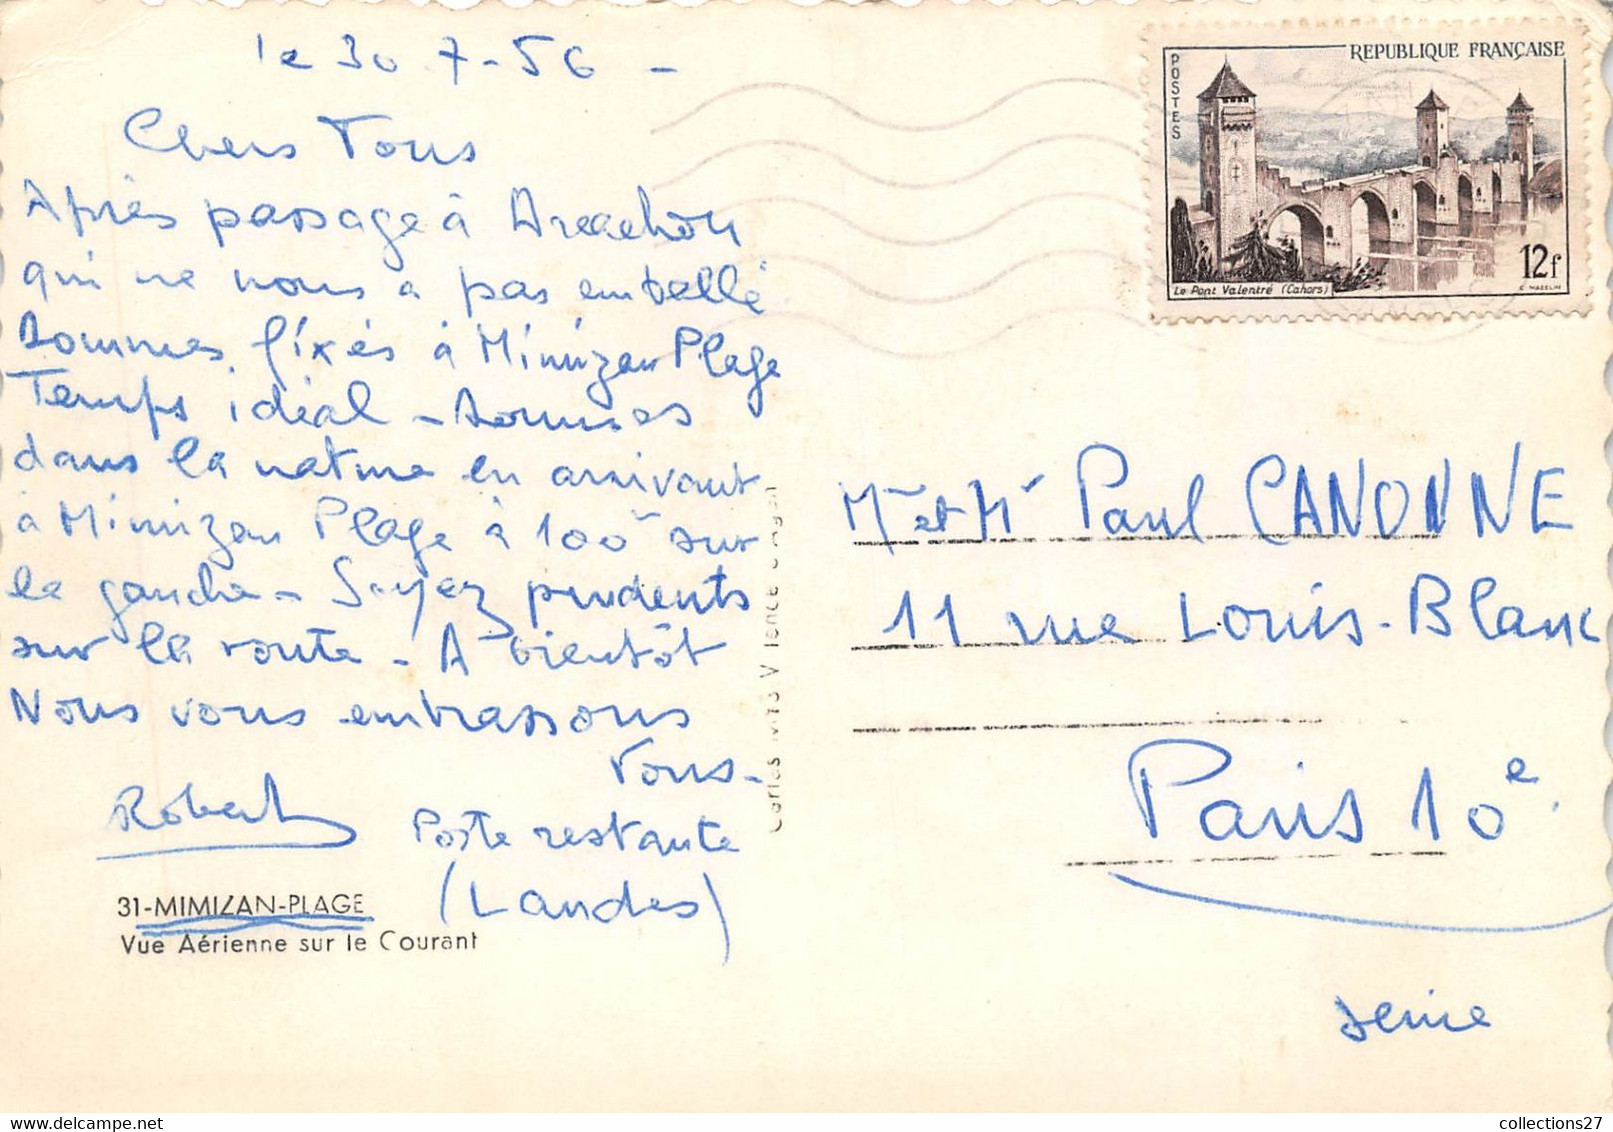 le 30.7-56 -
Chers Tous
Après passage à Arcachon
qui ne nous a pas emballé
sommes fixés à Mimizan Plage
Temps idéal - sommes
dans la nature en arrivant
à Mimizan Plage à 100m sur
la gauche - Soyez prudents
sur la route - A bientôt
Nous vous embrassons
Tous -
Robert
Poste restante
(Landes)
31-MIMIZAN-PLAGE
Vue Aérienne sur le Courant
REPUBLIQUE FRANÇAISE
POSTES
12f
Le Pont Valentré (Cahors)
C. MAZELIN
Mme et Mr Paul CANONNE
11 rue Louis-Blanc
Paris 10e.
Seine
collections27